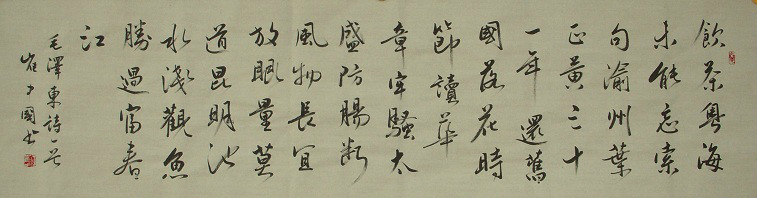 飲茶粵海
未能忘索
句渝州葉
正黃三十
一年還舊
國落花時
節讀華
章牢騷太
盛防腸斷
風物長宜
放眼量莫
道昆明池
水淺觀魚
勝過富春
江
毛澤東詩一首
國书